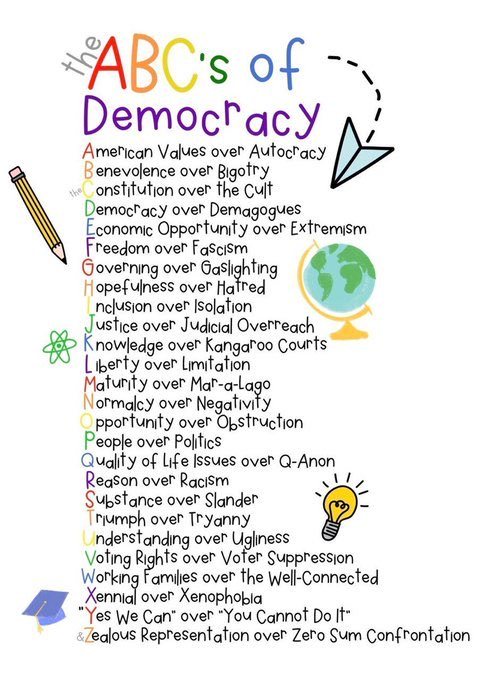 the ABC's of
Democracy
American Values over Autocracy
Benevolence over Bigotry
the Constitution over the Cult
Democracy over Demagogues
Economic Opportunity over Extremism
Freedom over Fascism
Governing over Gaslighting
Hopefulness over Hatred
Inclusion over Isolation
Justice over Judicial Overreach
Knowledge over Kangaroo Courts
Liberty over Limitation
Maturity over Mar-a-Lago
Normalcy over Negativity
Opportunity over Obstruction
People over Politics
Quality of Life Issues over Q-Anon
Reason over Racism
Substance over Slander
Triumph over Tryanny
Understanding over Ugliness
Voting Rights over Voter Suppression
Working Families over the Well-Connected
Xennial over Xenophobia
"Yes We Can" over "You Cannot Do It"
&Zealous Representation over Zero Sum Confrontation